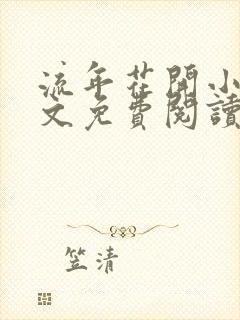 流年花開小
文免費閱讀
笠清